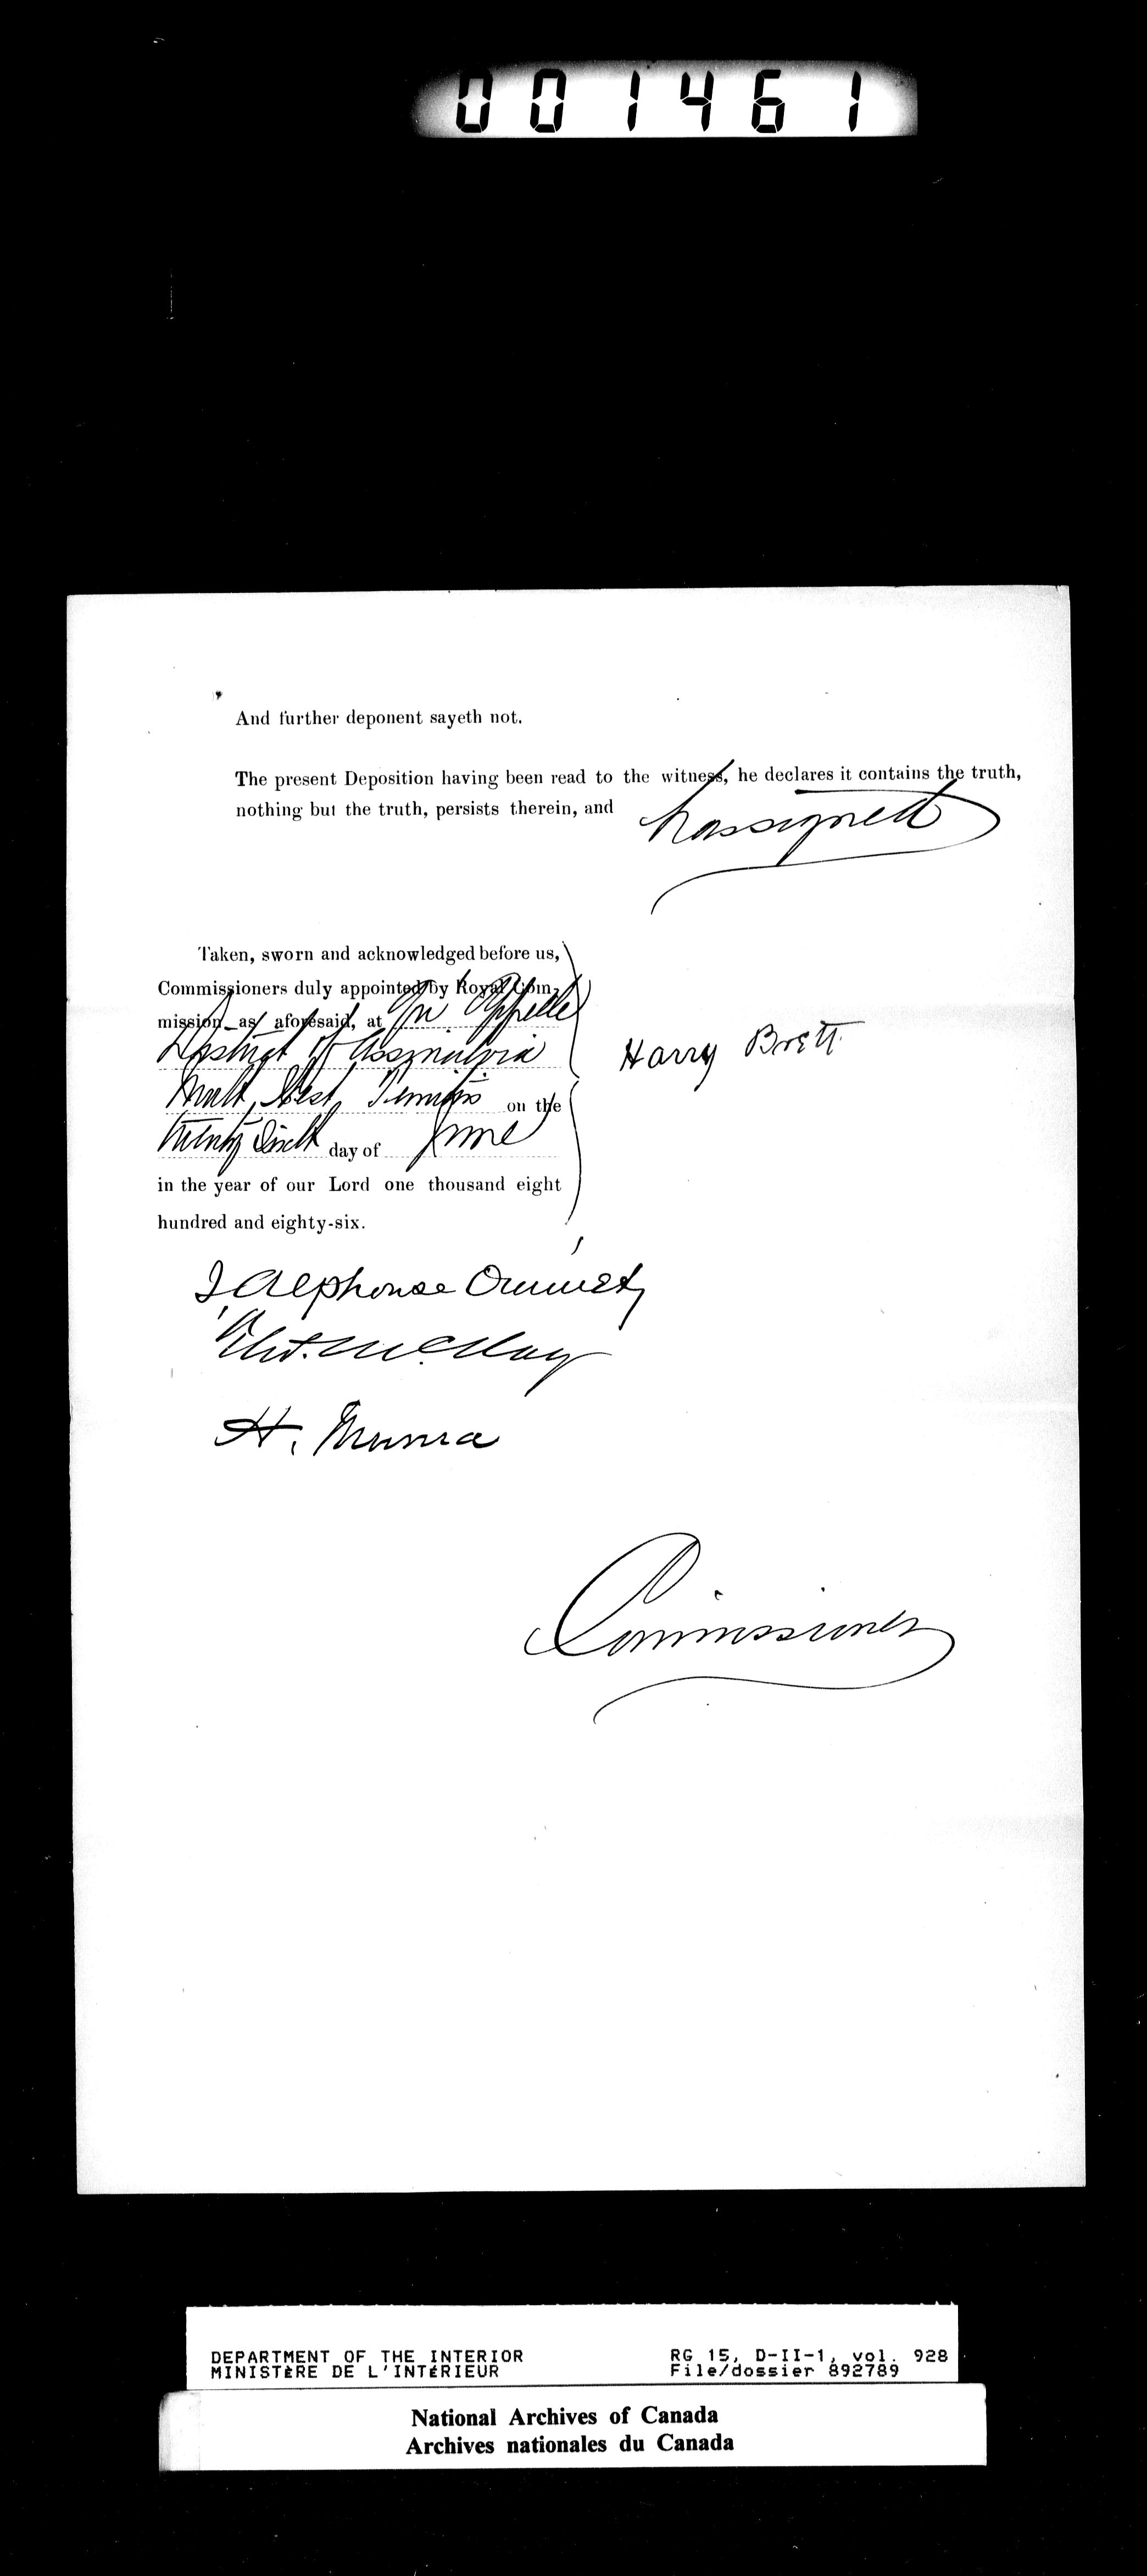 001461
And further deponent sayeth not.
The present Deposition having been read to the witness, he declares it contains the truth,
nothing but the truth, persists therein, and has signed
Taken, sworn and acknowledged before us,
Commissioners duly appointed by Royal Com-
mission as aforesaid, at Qu'Appelle
District of Assiniboia
North West Territories on the
twenty sixth day of June
in the year of our Lord one thousand eight
hundred and eighty-six.
Harry Brett
J Alphonse Ouimet
H. Munro
Commissioners
DEPARTMENT OF THE INTERIOR
MINISTÈRE DE L'INTÉRIEUR
RG 15, D-II-1, vol. 928
File/dossier 892789
National Archives of Canada
Archives nationales du Canada